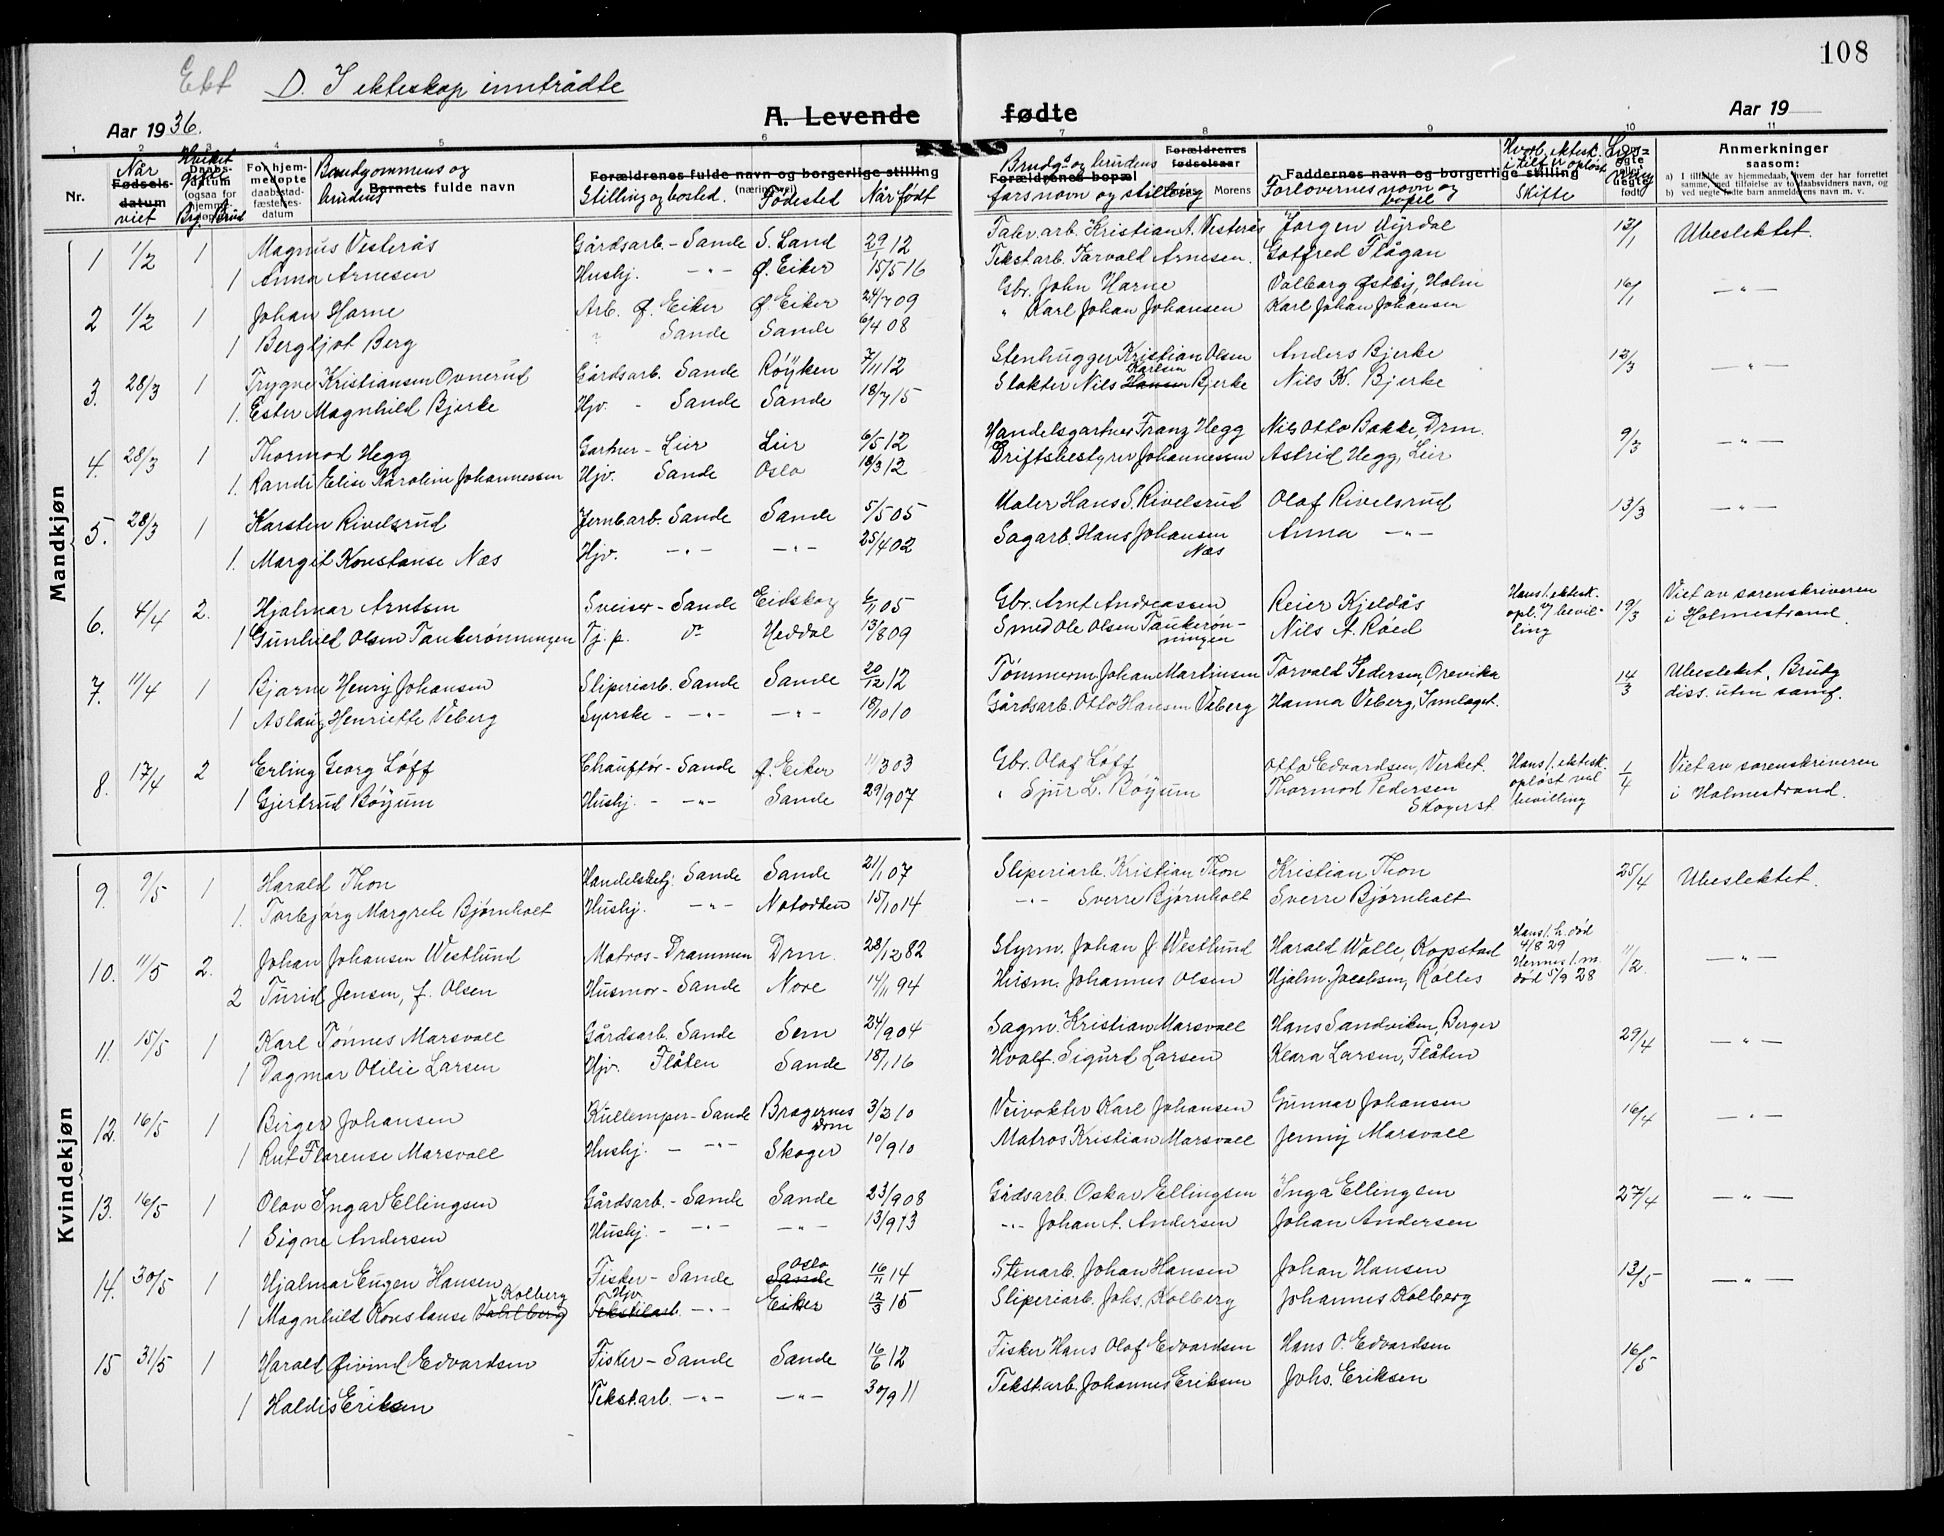 108
Ekt D. I ekteskap inntrådte
A. Levende fødte
Aar 1936.
Aar 19
1 2 3 4 5 6 7 8 9 10 11
Nr.
Når Fødselsdatum viet
Hvilket gifte Daabsdatum (ogsaa for hjemmedøpte) Brg. Brud
For hjemmedøpte daabsstadfæstelsesdatum
Brudgommens og brudens Barnets fulde navn
Forældrenes fulde navn og borgerlige stilling (næringsvei)
Stilling og bosted. Fødested Når født
Brudg.s og brudens Forældrenes bopæl farsnavn og stilling
Forældrenes fødselsaar Morens
Faddernes navn og borgerlige stilling
Forlovernes navn og bopel
Hvorl. ektesk. i tilf. er opløst Skifte
Anmerkninger
saasom:
a) I tilfælde av hjemmedaab, hvem der har forrettet samme, med tilføielse av to daabsvidners navn, og
b) ved uegte fødte barn anmelderens navn m. v.
Mandkjøn
1 1/2 1 Magnus Vesterås Gårdsarb. - Sande S. Land 29/1 12 Fabr. arb. Kristian A. Vesterås Jørgen Myrdal 13/1 Ubeslektet.
1 Anna Arnesen Hushj. -"- Ø. Eiker 15/5 16 Tekstarb. Torvald Arnesen. Gotfred Flågan
2 1/2 1 Johan Horne Arb. Ø. Eiker Ø. Eiker 24/7 09 Gbr. John Horne Valborg Østby, Holm 16/1 -"-
1 Bergljot Berg " Sande Sande 6/4 08 " Karl Johan Johansen Karl Johan Johansen
3. 28/3 1 Trygve Kristiansen Ovnerud Gårdsarb. Sande Røyken 7/11 12 Stenhugger Kristian Olsen Anders Bjerke 12/3 -"-
1. Ester Magnhild Bjerke Hjv. - Sande Sande 18/7 15 Slakter Nils Hansen Karlsen Bjerke Nils K. Bjerke
4. 28/3 1 Thormod Hegg Gartner - Lier Lier 6/5 12 Handelsgartner Franz Hegg Nils Otto Bakke, Drm. 9/3 -"-
1. Randi Elise Karoline Johannessen Hjv. Sande Oslo 18/3 12 Driftsbestyrer Johannessen Astrid Hegg, Lier
5. 28/3 1 Karsten Rivelsrud Jernb.arb. Sande Sande 5/5 05 Maler Hans S. Rivelsrud Olaf Rivelsrud 13/3 -"-
1. Margit Konstanse Næs Hjv. -"- -"- 25/4 02 Sagarb. Hans Johansen Næs Anna -"-
6. 4/4 2. Hjalmar Arntsen Sveiser - Sande Eidskog 6/11 05 Gbr. Arnt Andreassen Reier Kjeldås Hans 1. ektesk. opl. v/ bevilling 19/3 Viet av sorenskriveren i Holmestrand.
1 Gunhild Olsen Taukerønningen Tj. p. do Heddal 13/8 09 Smed Ole Olsen Taukerønningen Nils A. Røed
7. 11/4 1 Bjarne Henry Johansen Sliperiarb. Sande Sande 20/12 12 Tømmerm. Johan Martinsen Torvald Pedersen, Orevika 14/3 Ubeslektet, Brudg. diss. uten samf.
1 Aslaug Henriette Veberg Syerske -"- -"- 18/10 10 Gårdsarb. Otto Hansen Veberg Hanna Veberg, Innlaget.
8. 17/4 2 Erling Georg Løff Chauffør - Sande Ø. Eiker 11/3 03 Gbr. Olaf Løff Otto Edvardsen, Verket. Hans 1. ektesk. opløst ved bevilling 1/4 Viet av sorenskriveren i Holmestrand.
1 Gjertrud Bøyum Hushj. - -"- Sande 29/9 07 " Sjur L. Bøyum Thormod Pedersen Skogerst.
Kvindekjøn
9. 9/5 1 Harald Thon Handelsbetj. Sande Sande 21/1 07 Sliperiarb. Kristian Thon Kristian Thon 25/4 Ubeslektet.
1. Torbjørg Margrete Bjørnholt Hushj. -"- Notodden 15/10 14 -"- Sverre Bjørnholt Sverre Bjørnholt
10. 11/5 2. Johan Johansen Westlund Matros - Drammen Drm. 28/12 82 Styrm. Johan J. Westlund Harald Walle Kopstad Hans 1. h. død 4/8 29 Hennes 1. m. død 5/9 28 11/2. -"-
2 Turid Jensen, f. Olsen Husmor - Sande Nore 14/11 94 Husm. Johannes Olsen Hjalm. Jacobsen, Rølles
11. 15/5 1 Karl Tønnes Marsvall Gårdsarb. Sande Sem 24/9 04 Sagm. Kristian Marsvall Hans Sandviken, Berger 29/4 -"-
1 Dagmar Otilie Larsen Hjv. Flåten Sande 18/1 16 Hvalf. Sigurd Larsen Klara Larsen, Flåten
12. 16/5 1 Birger Johansen Kullemper - Sande Bragernes Drm 3/3 10 Veivokter Karl Johansen Gunnar Johansen 16/4 -"-
1 Rut Florense Marsvall Hushj. - -"- Skoger 10/9 10 Matros Kristian Marsvall Jenny Marsvall
13. 16/5 1 Olav Ingar Ellingsen Gårdsarb. - Sande Sande 23/9 08 Gårdsarb. Oskar Ellingsen Inga Ellingsen 27/4 -"-
1 Signe Andersen Hushj. - -"- -"- 13/9 13 -"- Johan A. Andersen Johan Andersen
14. 30/5 1 Hjalmar Eugen Hansen Fisker - Sande Sande Oslo 16/11 14 Stenarb. Johan Hansen Johan Hansen 13/5 -"-
1 Magnhild Konstanse Vahlberg Kolberg Tekstilarb. Hjv -"- Eiker 12/3 15 Sliperiarb. Johs. Kolberg Johannes Kolberg
15 31/5 1 Harald Øivind Edvardsen Fisker - Sande Sande 16/6 12 Fisker Hans Olaf Edvardsen Hans O. Edvardsen 16/5
1 Haldis Eriksen Tekst.arb. -"- -"- 30/9 11 Tekst.arb. Johannes Eriksen Johs. Eriksen